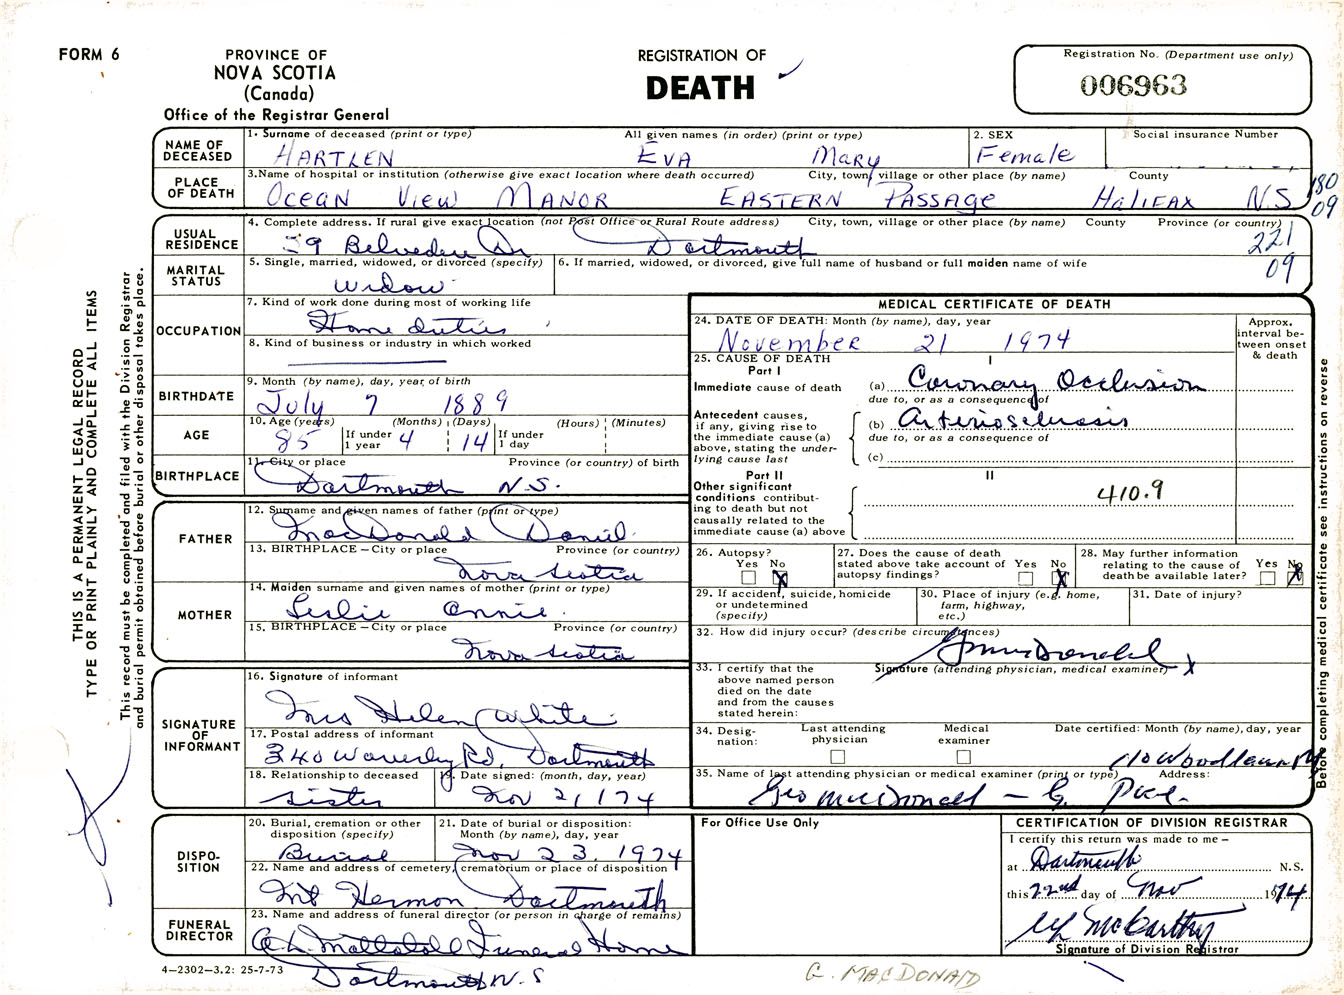 FORM 6
PROVINCE OF
NOVA SCOTIA
(Canada)
Office of the Registrar General
REGISTRATION OF
DEATH
Registration No. (Department use only)
006963
THIS IS A PERMANENT LEGAL RECORD
TYPE OR PRINT PLAINLY AND COMPLETE ALL ITEMS
This record must be completed and filed with the Division Registrar
and burial permit obtained before burial or other disposal takes place.
NAME OF
DECEASED
1. Surname of deceased (print or type) All given names (in order) (print or type)
HARTLEN EVA MARY
2. SEX
Female
Social insurance Number
PLACE
OF DEATH
3. Name of hospital or institution (otherwise give exact location where death occurred) City, town, village or other place (by name) County
OCEAN VIEW MANOR EASTERN PASSAGE HALIFAX N.S
180
09
USUAL
RESIDENCE
4. Complete address. If rural give exact location (not Post Office or Rural Route address) City, town, village or other place (by name) County Province (or country)
59 Belvedere Dr Dartmouth
221
09
MARITAL
STATUS
5. Single, married, widowed, or divorced (specify)
widow
6. If married, widowed, or divorced, give full name of husband or full maiden name of wife
OCCUPATION
7. Kind of work done during most of working life
Home duties
8. Kind of business or industry in which worked
BIRTHDATE
9. Month (by name), day, year of birth
July 7 1889
AGE
10. Age (years) (Months) (Days) (Hours) (Minutes)
85 If under 1 year 4 14 If under 1 day
BIRTHPLACE
11. City or place Province (or country) of birth
Dartmouth N.S.
FATHER
12. Surname and given names of father (print or type)
MacDonald Daniel
13. BIRTHPLACE – City or place Province (or country)
Nova Scotia
MOTHER
14. Maiden surname and given names of mother (print or type)
Leslie Annie.
15. BIRTHPLACE – City or place Province (or country)
Nova Scotia
SIGNATURE
OF
INFORMANT
16. Signature of informant
Mrs Helen White
17. Postal address of informant
340 Waverly Rd, Dartmouth
18. Relationship to deceased
sister
19. Date signed: (month, day, year)
Nov 21/74
DISPO-
SITION
20. Burial, cremation or other
disposition (specify)
Burial
21. Date of burial or disposition:
Month (by name), day, year
Nov 23, 1974
22. Name and address of cemetery, crematorium or place of disposition
Mt Hermon Dartmouth
FUNERAL
DIRECTOR
23. Name and address of funeral director (or person in charge of remains)
A.L. Mattatall Funeral Home
Dartmouth N.S
4–2302–3.2: 25-7-73
MEDICAL CERTIFICATE OF DEATH
24. DATE OF DEATH: Month (by name), day, year
November 21 1974
Approx.
interval be-
tween onset
& death
25. CAUSE OF DEATH
Part I I
Immediate cause of death (a) Coronary Occlusion
due to, or as a consequence of
Antecedent causes,
if any, giving rise to
the immediate cause (a)
above, stating the under-
lying cause last
(b) Arteriosclerosis
due to, or as a consequence of
(c)
Part II II
Other significant
conditions contribut-
ing to death but not
causally related to the
immediate cause (a) above
410.9
26. Autopsy?
Yes No
X
27. Does the cause of death
stated above take account of
autopsy findings?
Yes No
X
28. May further information
relating to the cause of
death be available later?
Yes No
X
29. If accident, suicide, homicide
or undetermined
(specify)
30. Place of injury (e.g. home,
farm, highway,
etc.)
31. Date of injury?
32. How did injury occur? (describe circumstances)
33. I certify that the
above named person
died on the date
and from the causes
stated herein:
Signature (attending physician, medical examiner) X
34. Desig-
nation:
Last attending
physician
Medical
examiner
Date certified: Month (by name), day, year
110 Woodlawn Rd
35. Name of last attending physician or medical examiner (print or type) Address:
Geo MacDonald – G.
For Office Use Only
CERTIFICATION OF DIVISION REGISTRAR
I certify this return was made to me –
at Dartmouth N.S.
this 22nd day of Nov 1974
McCarthy
Signature of Division Registrar
G. MACDONALD
Before completing medical certificate see instructions on reverse